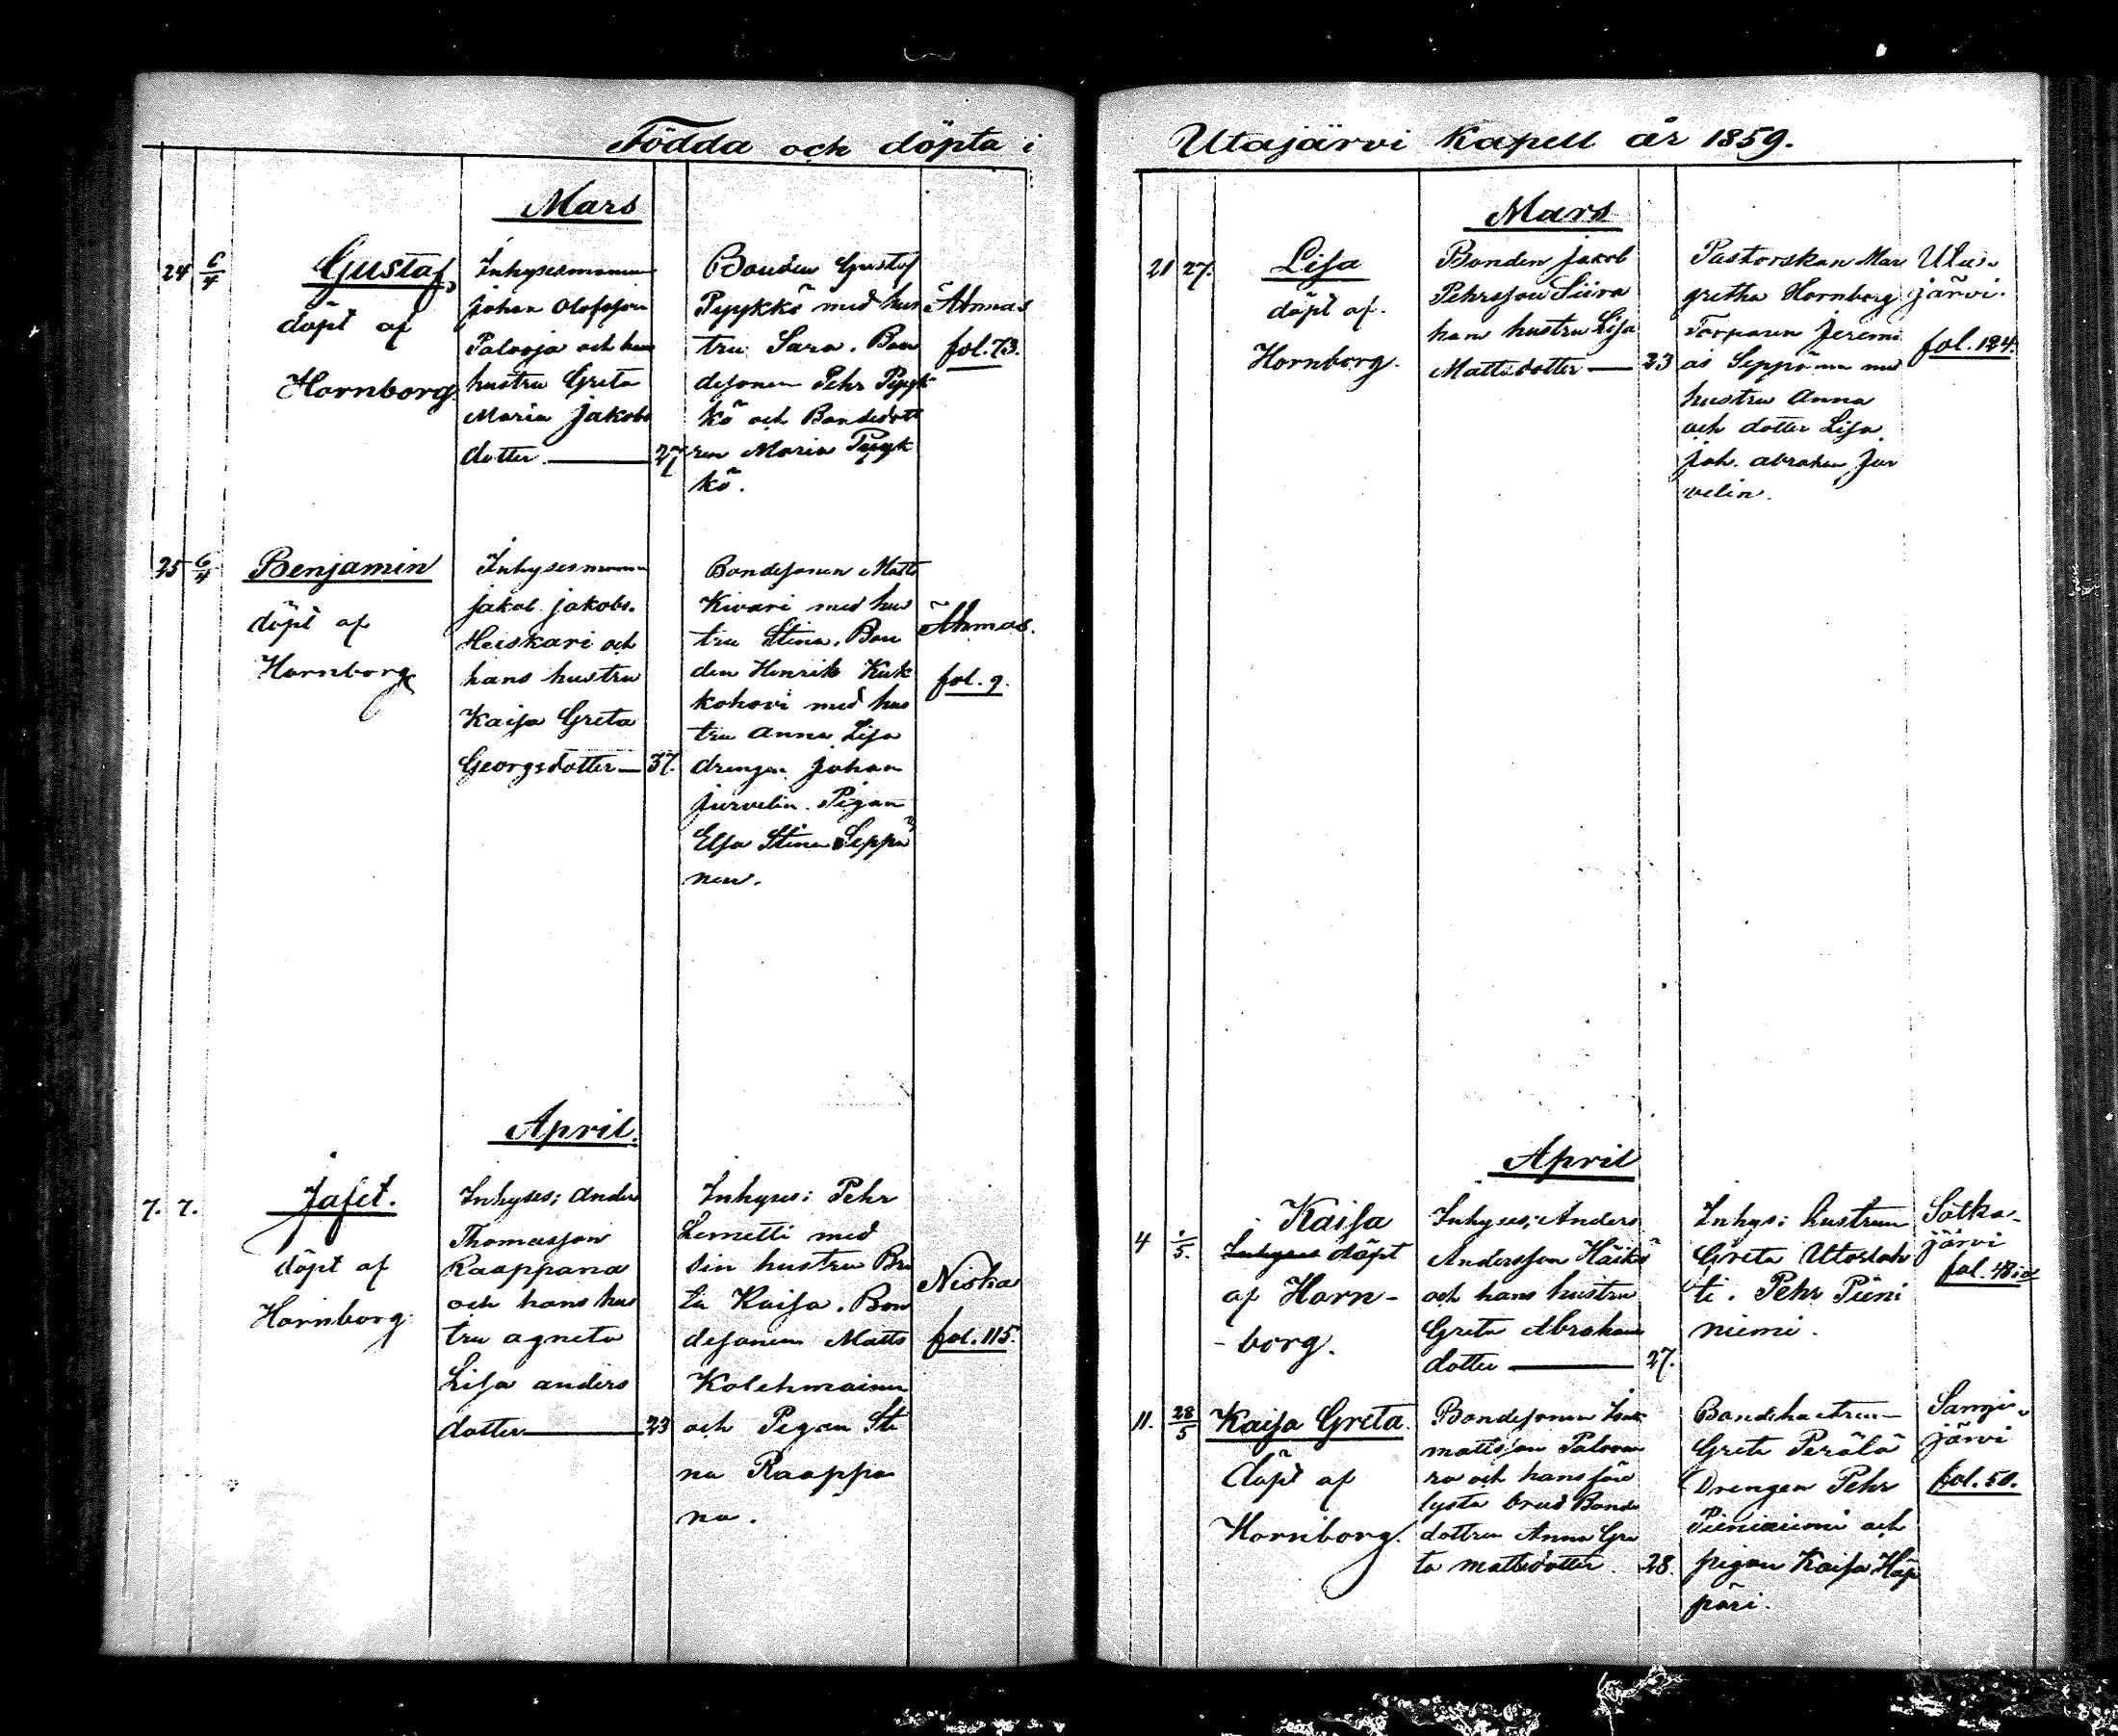 Födda och döpta i
Mars
24 6/4
Gustaf,
döpt af
Hornborg
Inhysesmannen
Johan Olofsson
Palooja och hans
hustru Greta
Maria Jakobs
dotter — 27
Bonden Gustaf
Pyykkö med hus
tru Sara. Bon
desonen Pehr Pyyk
kö och Bondedott
ren Maria Pyyk
kö.
Ähmas
fol. 73.
25 6/4
Benjamin
döpt af
Hornborg
Inhysesmannen
Jakob Jakobs.
Heiskari och
hans hustru
Kaisa Greta
Georgsdotter — 37.
Bondesonen Matts
Kivari med hus
tru Stina. Bon
den Henrik Kuk
kohovi med hus
tru Anna Lisa
drengen Johan
Jurvelin. Pigan
Elsa Stina Seppä
nen.
Ähmas.
fol. 9.
April.
7. 7.
Jafet.
döpt af
Hornborg
Inhyses: Anders
Thomasson
Kaappana
och hans hus
tru Agneta
Lisa Anders
dotter — 23
Inhyses: Pehr
Lemetti med
sin hustru Bri
ta Kaisa. Bon
desonen Matts
Kolehmainen
och Pigan Sti
na Raappa
na.
Niska
fol. 115.
Utajärvi Kapell år 1859.
Mars
21 27.
Lisa
döpt af
Hornborg.
Bonden Jakob
Pehrsson Siira
hans hustru Lisa
Mattsdotter — 23
Pastorskan Mar
gretha Hornborg
Torparen Jeremi
as Seppänen med
hustru Anna
och dotter Lisa
Joh. Abraham Jur
velin.
Uta-
järvi.
fol. 124.
April
4 1/5.
Kaisa
Inhyses döpt
af Horn-
-borg.
Inhyses: Anders
Andersson Häikö
och hans hustru
Greta Abrahams
dotter — 27.
Inhys: hustrun
Greta Utoslah
ti. Pehr Pieni
niemi.
Sotka-
järvi
fol. 48
11. 28/5
Kaisa Greta.
döpt af
Hornborg.
Bondesonen
Mattsson Palovaa
ra och hans för
lysta brud Bonde
dottren Anna Gre
ta Mattsdotter. 28.
Bondehustrun
Greta Perälä
Drengen Pehr
Pieniniemi och
pigan Kaisa Häp
päri.
Sangi-
järvi
fol. 50.